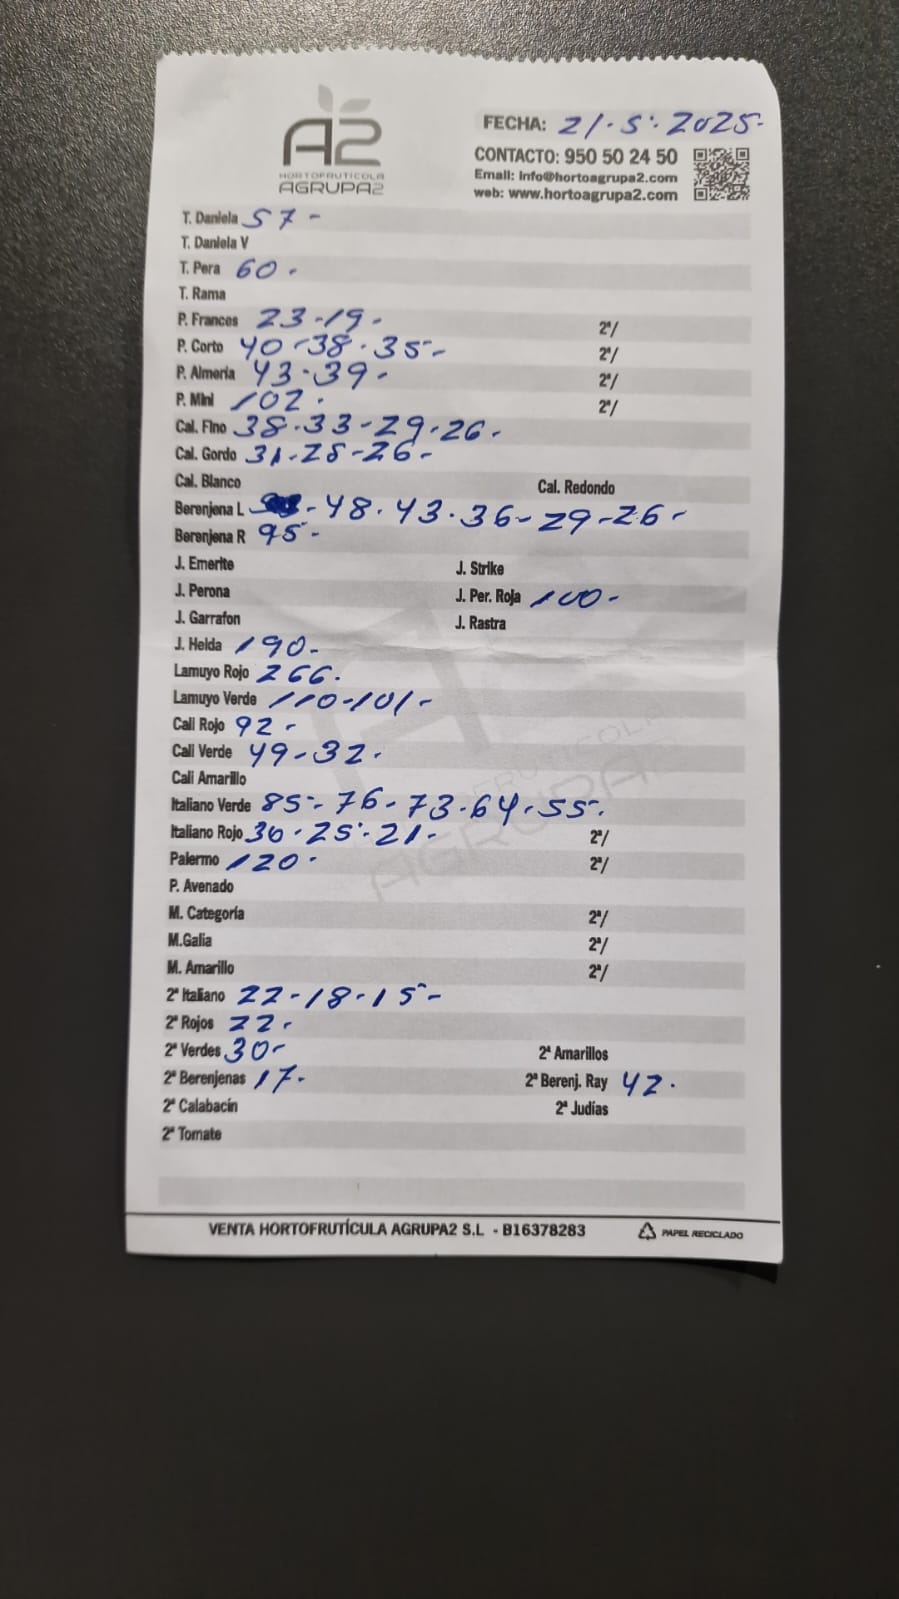 A2
HORTOFRUTICOLA
AGRUPA2
FECHA: 21-5-2025-
CONTACTO: 950 50 24 50
Email: info@hortoagrupa2.com
web: www.hortoagrupa2.com
T. Daniela 57-
T. Daniela V
T. Pera 60-
T. Rama
P. Frances 23-19- 2ª/
P. Corto 40-38-35- 2ª/
P. Almeria 43-39- 2ª/
P. Mini 102- 2ª/
Cal. Fino 38-33-29-26-
Cal. Gordo 31-28-26-
Cal. Blanco Cal. Redondo
Berenjena L -48-43-36-29-26-
Berenjena R 95-
J. Emerite J. Strike
J. Perona J. Per. Roja 100-
J. Garrafon J. Rastra
J. Helda 190-
Lamuyo Rojo 266-
Lamuyo Verde 110-101-
Cali Rojo 92-
Cali Verde 49-32-
Cali Amarillo
Italiano Verde 85-76-73-64-55-
Italiano Rojo 30-25-21- 2ª/
Palermo 120- 2ª/
P. Avenado
M. Categoría 2ª/
M.Galia 2ª/
M. Amarillo 2ª/
2ª Italiano 22-18-15-
2ª Rojos 22-
2ª Verdes 30- 2ª Amarillos
2ª Berenjenas 17- 2ª Berenj. Ray 42-
2ª Calabacín 2ª Judías
2ª Tomate
HORTOFRUTICOLA
AGRUPA2
VENTA HORTOFRUTÍCULA AGRUPA2 S.L - B16378283 PAPEL RECICLADO